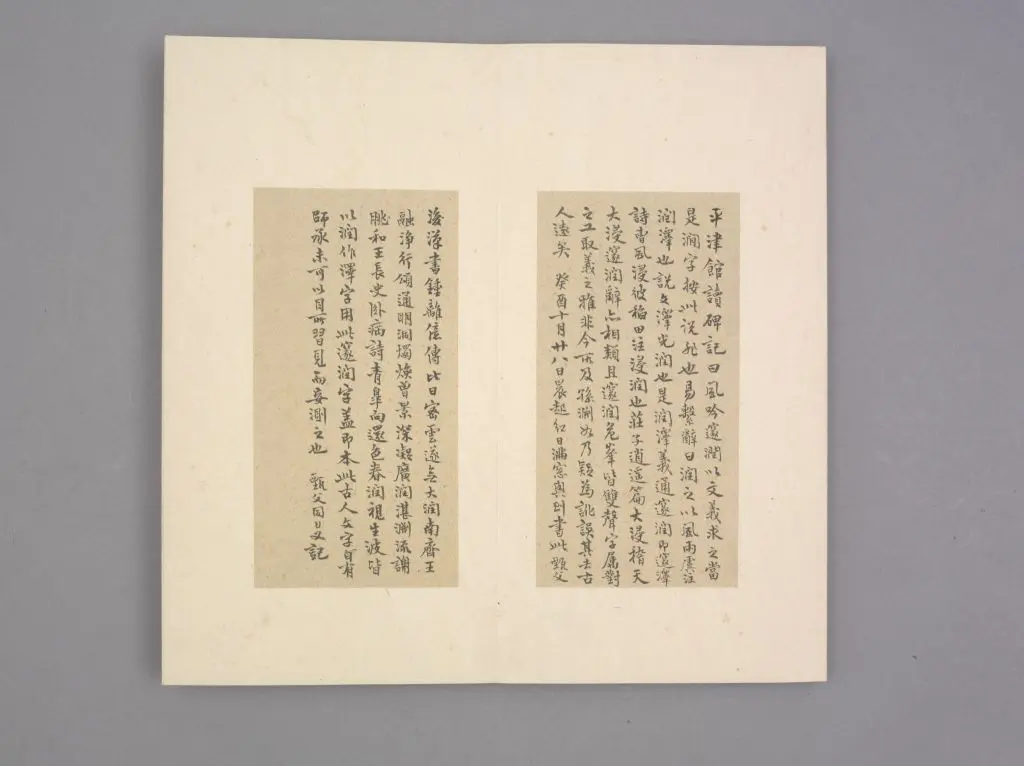 平津館讀碑記曰風吟邃潤以文義求之當
是澗字按此說非也易繫辭曰潤之以風雨虞注
潤澤也說文澤光潤也是潤澤義通邃潤即邃澤
詩曹風浸彼稻田注浸潤也莊子逍遙篇大浸稽天
大浸邃潤辭亦相類且邃潤危峯皆雙聲字屬對
之工取義之雅非今所及孫淵如乃疑為訛誤其去古
人遠矣 癸酉十月廿八日晨起紅日滿窗興到書此甄父
後漢書鍾離意傳比日密雲遂無大潤南齊王
融淨行頌通明洞燭煥曾景深凝廣潤湛淵流謝
朓和王長史臥病詩青皐向還色春潤視生波皆
以潤作澤字用此邃潤字蓋即本此古人文字自有
師承未可以目所習見而妄測之也 甄父同日又記